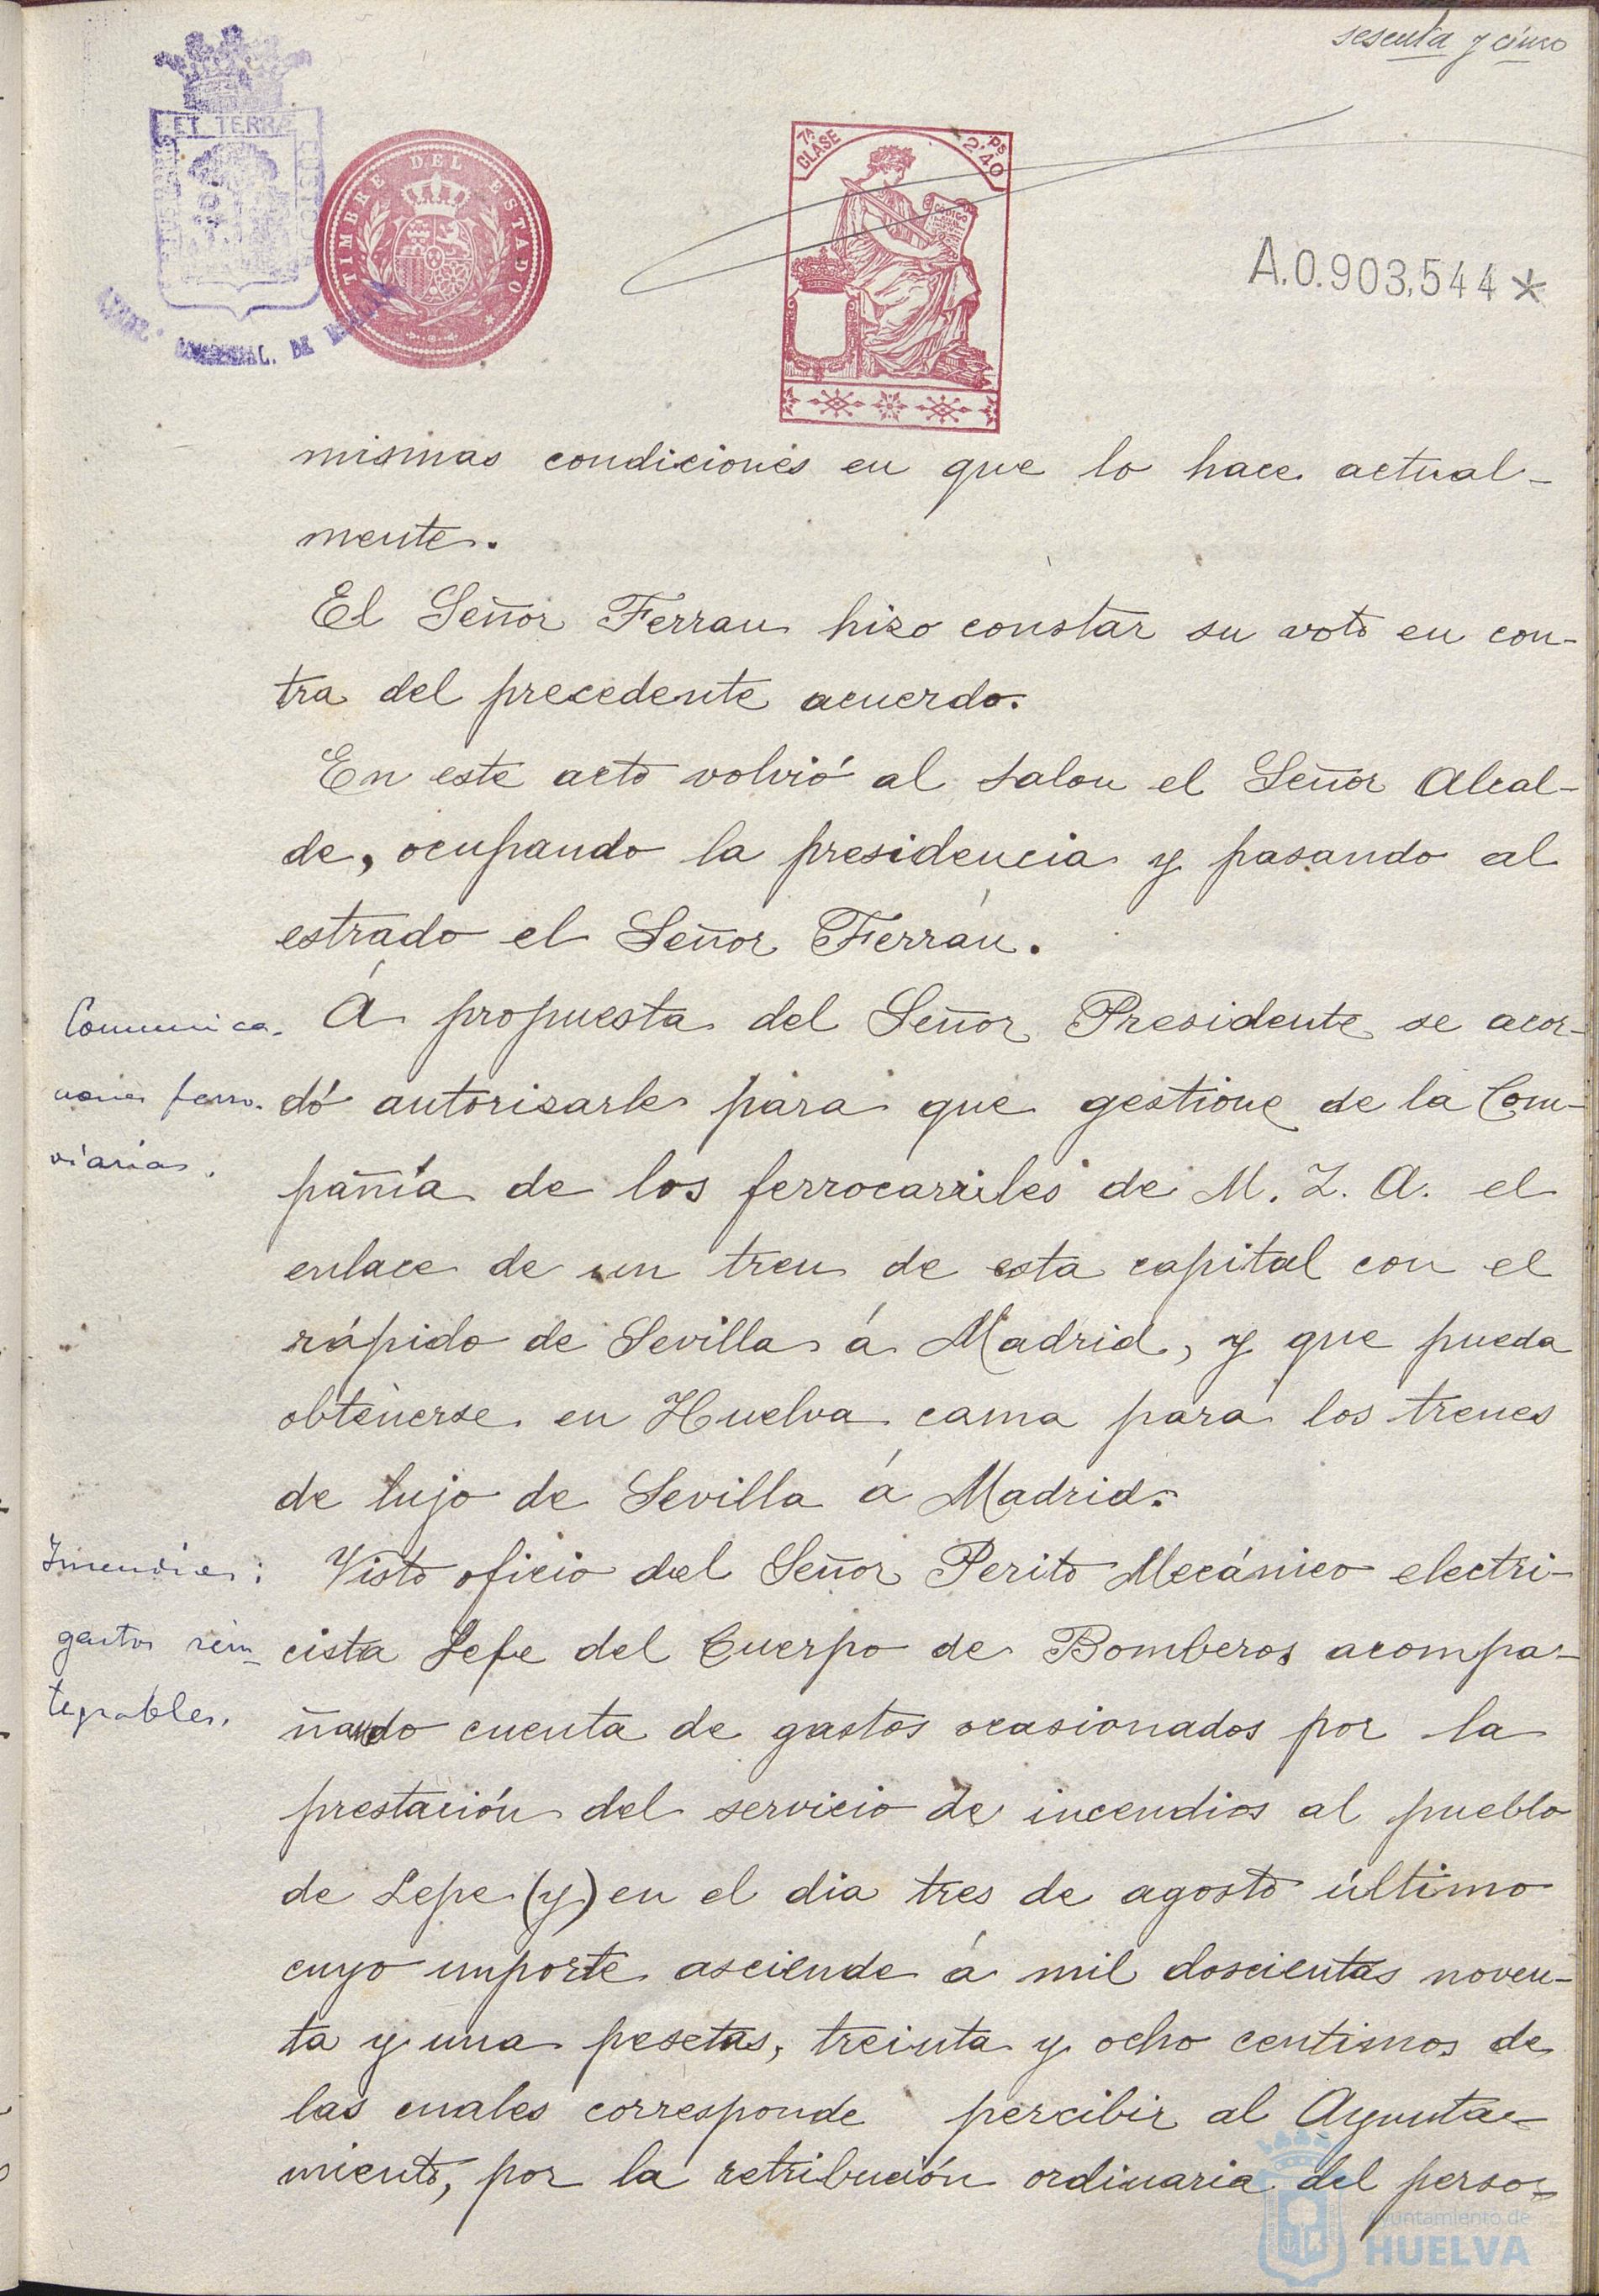 sesenta y cinco
ET TERRÆ
TIMBRE DEL ESTADO
7ª CLASE
2'40 Ps
CODIGO
A.0.903,544*
mismas condiciones en que lo hace actual-
mente.
El Señor Ferran hizo constar su voto en con-
tra del precedente acuerdo.
En este acto volvió al salon el Señor Alcal-
de, ocupando la presidencia y pasando al
estrado el Señor Ferrán.
Comunica-
ciones ferro-
viarias.
Á propuesta del Señor Presidente se acor-
dó autorizarle para que gestione de la Com-
pañía de los ferrocarriles de M. Z. A. el
enlace de un tren de esta capital con el
rápido de Sevilla á Madrid, y que pueda
obtenerse en Huelva cama para los trenes
de lujo de Sevilla á Madrid.
Incendios:
gastos rein-
tegrables.
Visto oficio del Señor Perito Mecánico electri-
cista Jefe del Cuerpo de Bomberos acompa-
ñando cuenta de gastos ocasionados por la
prestación del servicio de incendios al pueblo
de Lepe (y) en el dia tres de agosto último
cuyo importe asciende á mil doscientas noven-
ta y una pesetas, treinta y ocho centimos de
las cuales corresponde percibir al Ayunta-
miento, por la retribución ordinaria del perso-
Ayuntamiento de
HUELVA